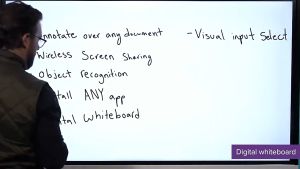 nnotate over any document
- Visual input Select
Wireless Screen Sharing
Object recognition
tall ANY app
ital Whiteboard
Digital whiteboard